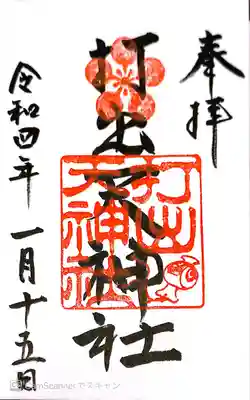 奉拝
打出天神社
打出
天神社
令和四年 一月十五日
CamScannerでスキャン